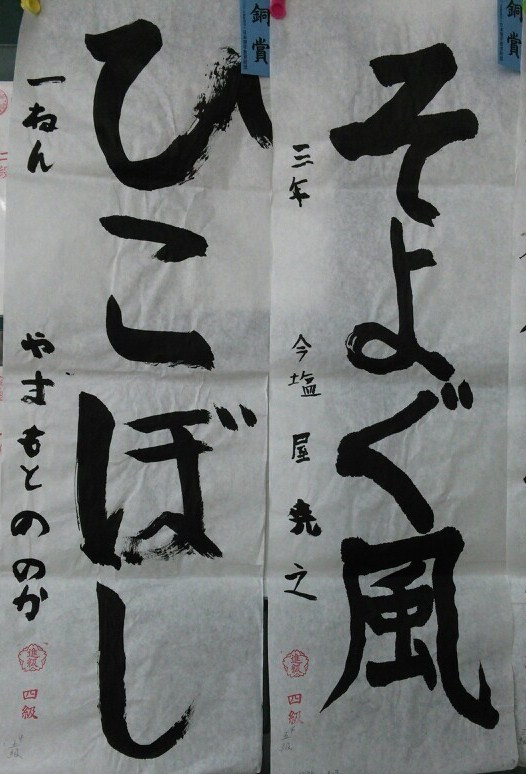 銅賞
そよぐ風
三年 今塩屋 尭之
進級
四級
銅賞
ひこぼし
一ねん やまもと ののか
進級
四級